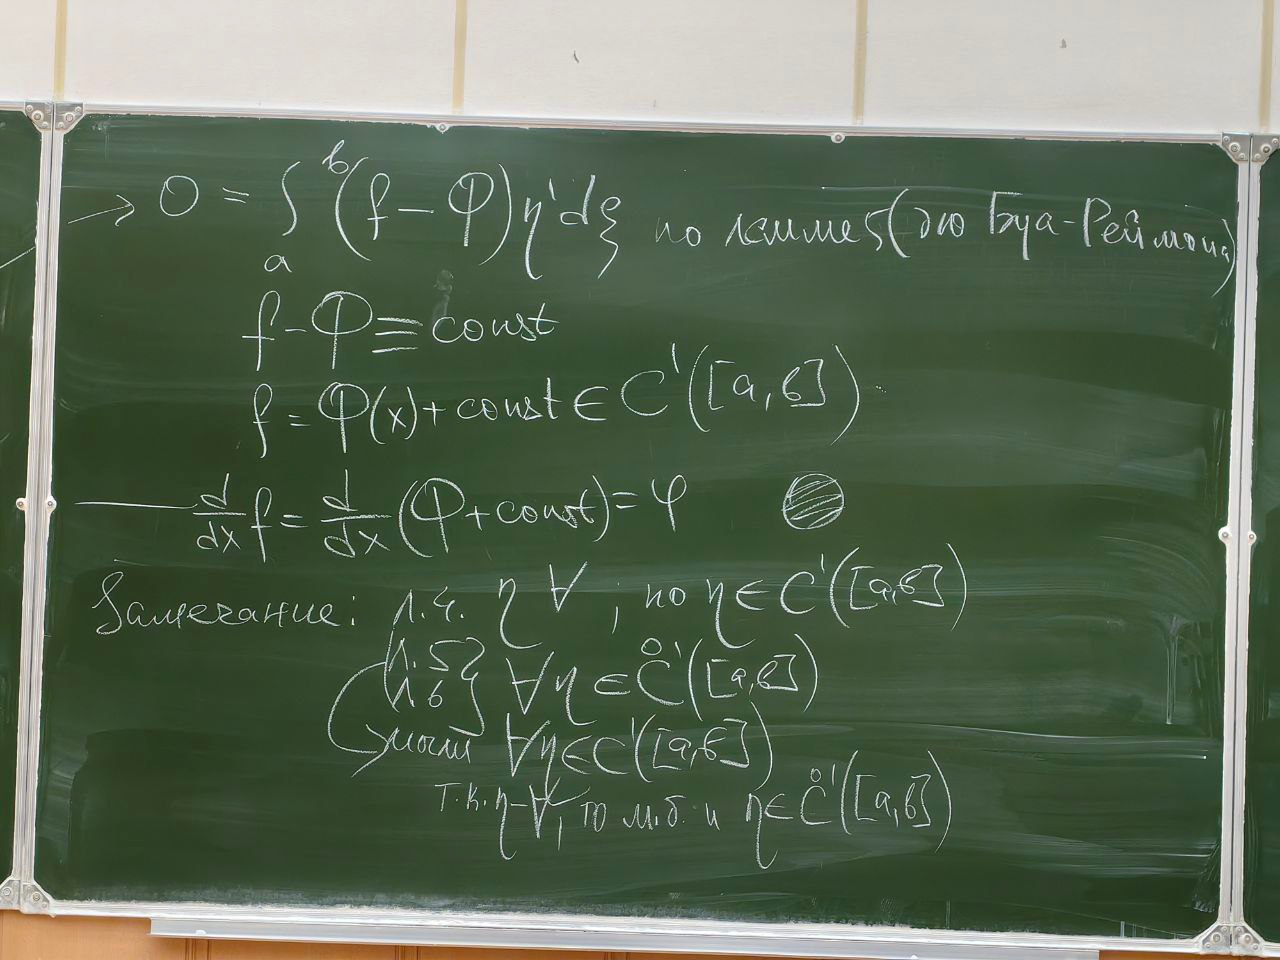 → 0 = ∫ₐᵇ (f − Φ) η' dξ по лемме 5 (дю Буа-Реймона)
f − Φ ≡ const
f = Φ(x) + const ∈ C¹([a,b])
d/dx f = d/dx (Φ + const) = φ
Замечание: Л.4. η ∀, но η ∈ C¹([a,b])
Л.5 Л.6 } ∀η ∈ C̊¹([a,b])
∀η ∈ C¹([a,b])
т.к. η − ∀, то м.б. и η ∈ C̊¹([a,b])